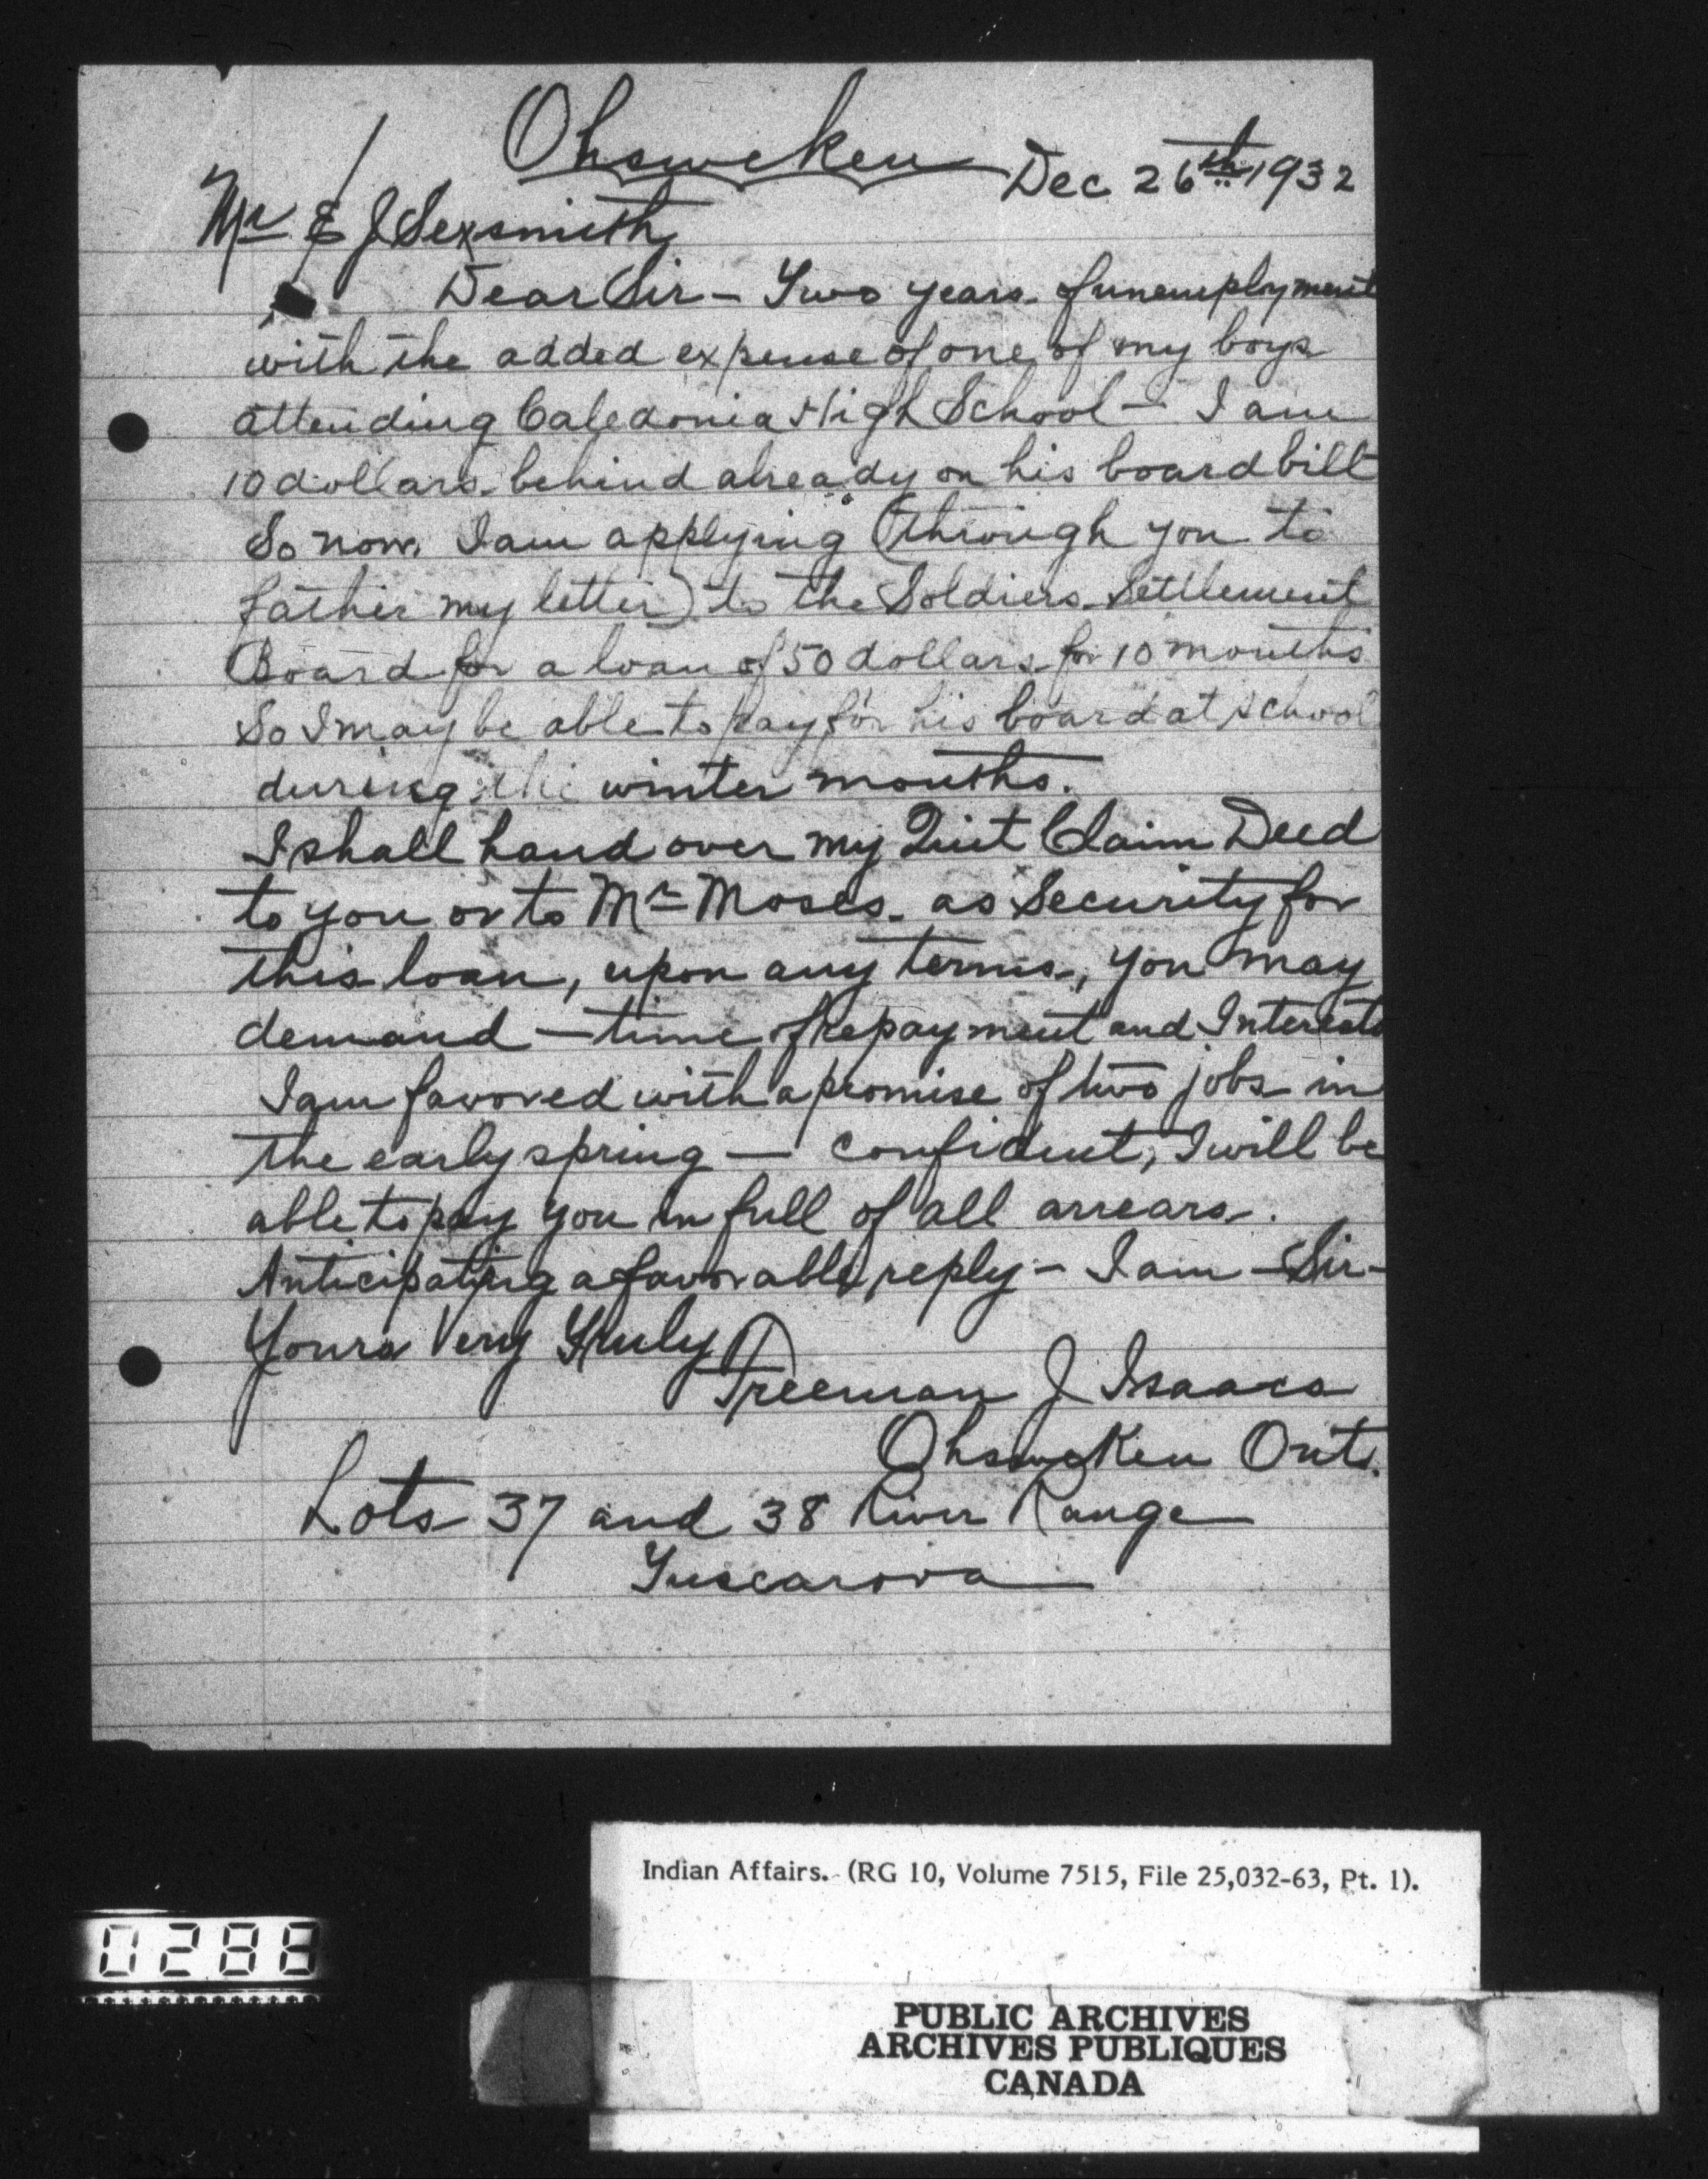 Ohsweken Dec 26th 1932
Mr E J Sexsmith
Dear Sir - Two years of unemployment
with the added expense of one of my boys
attending Caledonia High School - I am
10 dollars behind already on his board bill
So now I am applying (through you to
father my letter) to the Soldiers Settlement
Board for a loan of 50 dollars for 10 months
So I may be able to pay for his board at school
during the winter months.
I shall hand over my Quit Claim Deed
to you or to Mr Moses - as Security for
this loan, upon any terms, you may
demand - time of repayment and Interests
I am favored with a promise of two jobs in
the early spring - confident, I will be
able to pay you in full of all arrears.
Anticipating a favorable reply - I am - Sir -
Yours Very Truly
Freeman J Isaacs
Ohsweken Ont.
Lots 37 and 38 River Range
Tuscarora
Indian Affairs. (RG 10, Volume 7515, File 25,032-63, Pt. 1).
0288
PUBLIC ARCHIVES
ARCHIVES PUBLIQUES
CANADA